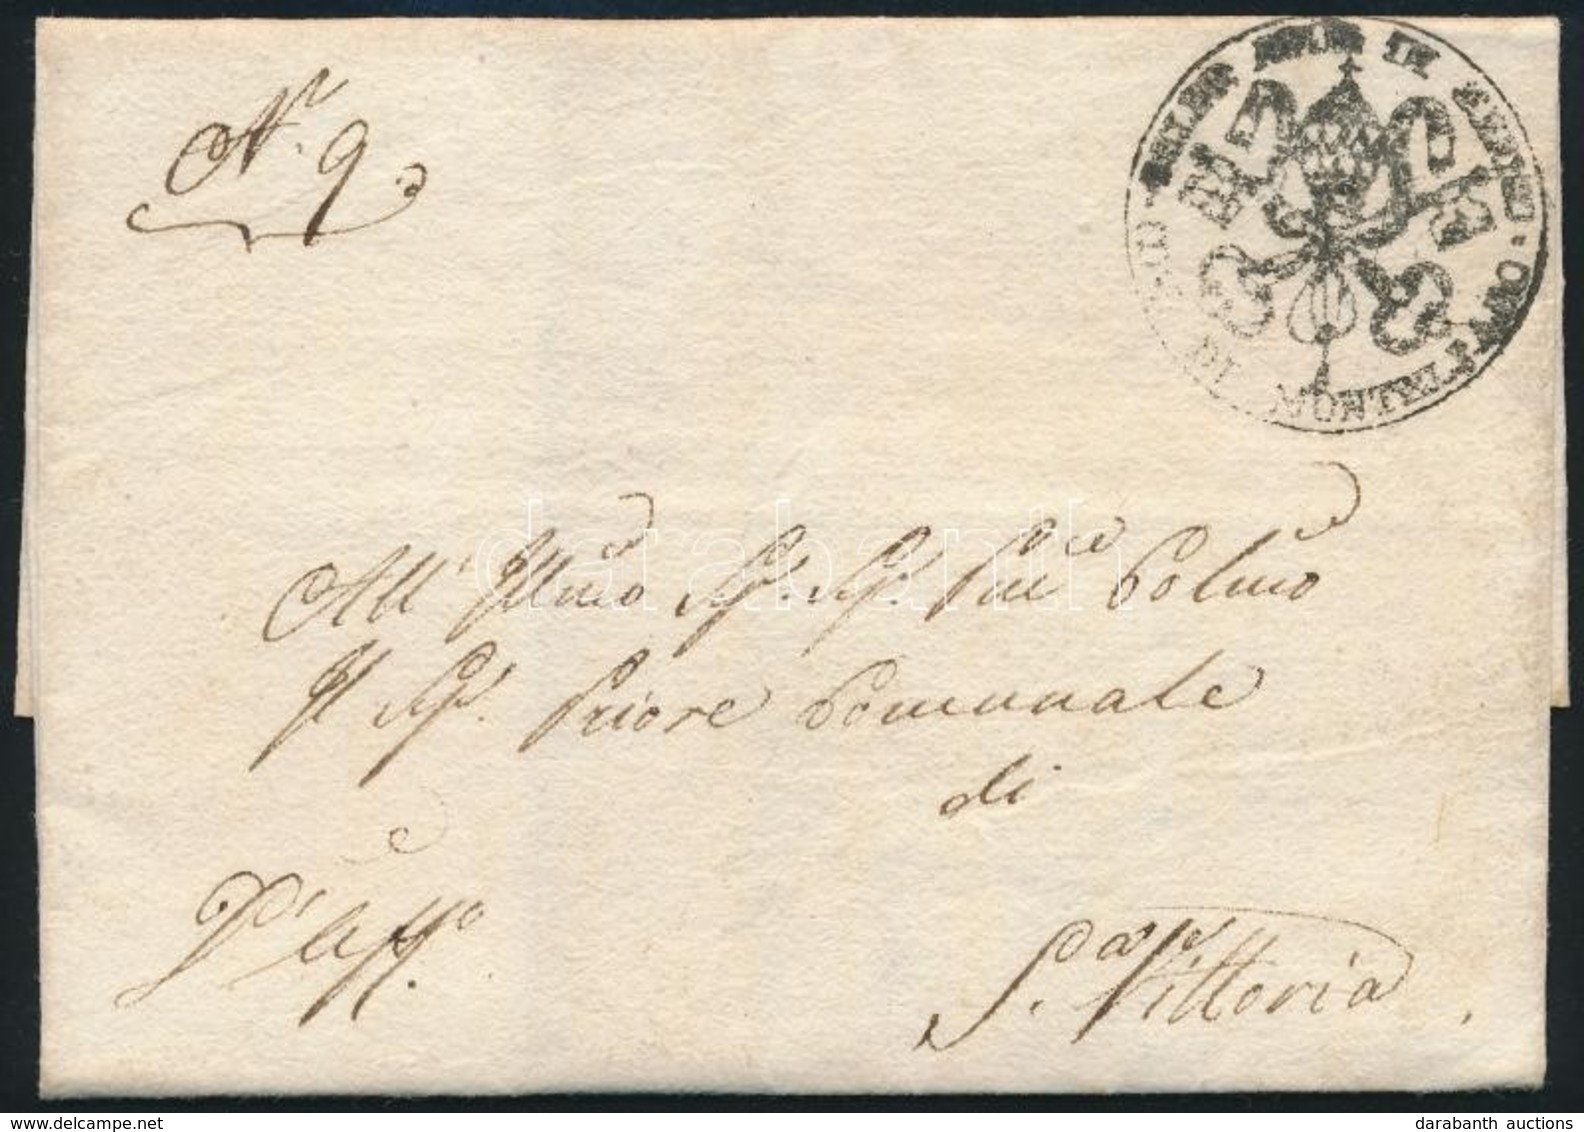 N.r 9.
DI MONTELPARO
All' Illmo Sig. Sig. Prñe Colmo
Il Sig. Priore Comunale
di
S. Vittoria
D'uff.o
darabanth
darabanth auctions